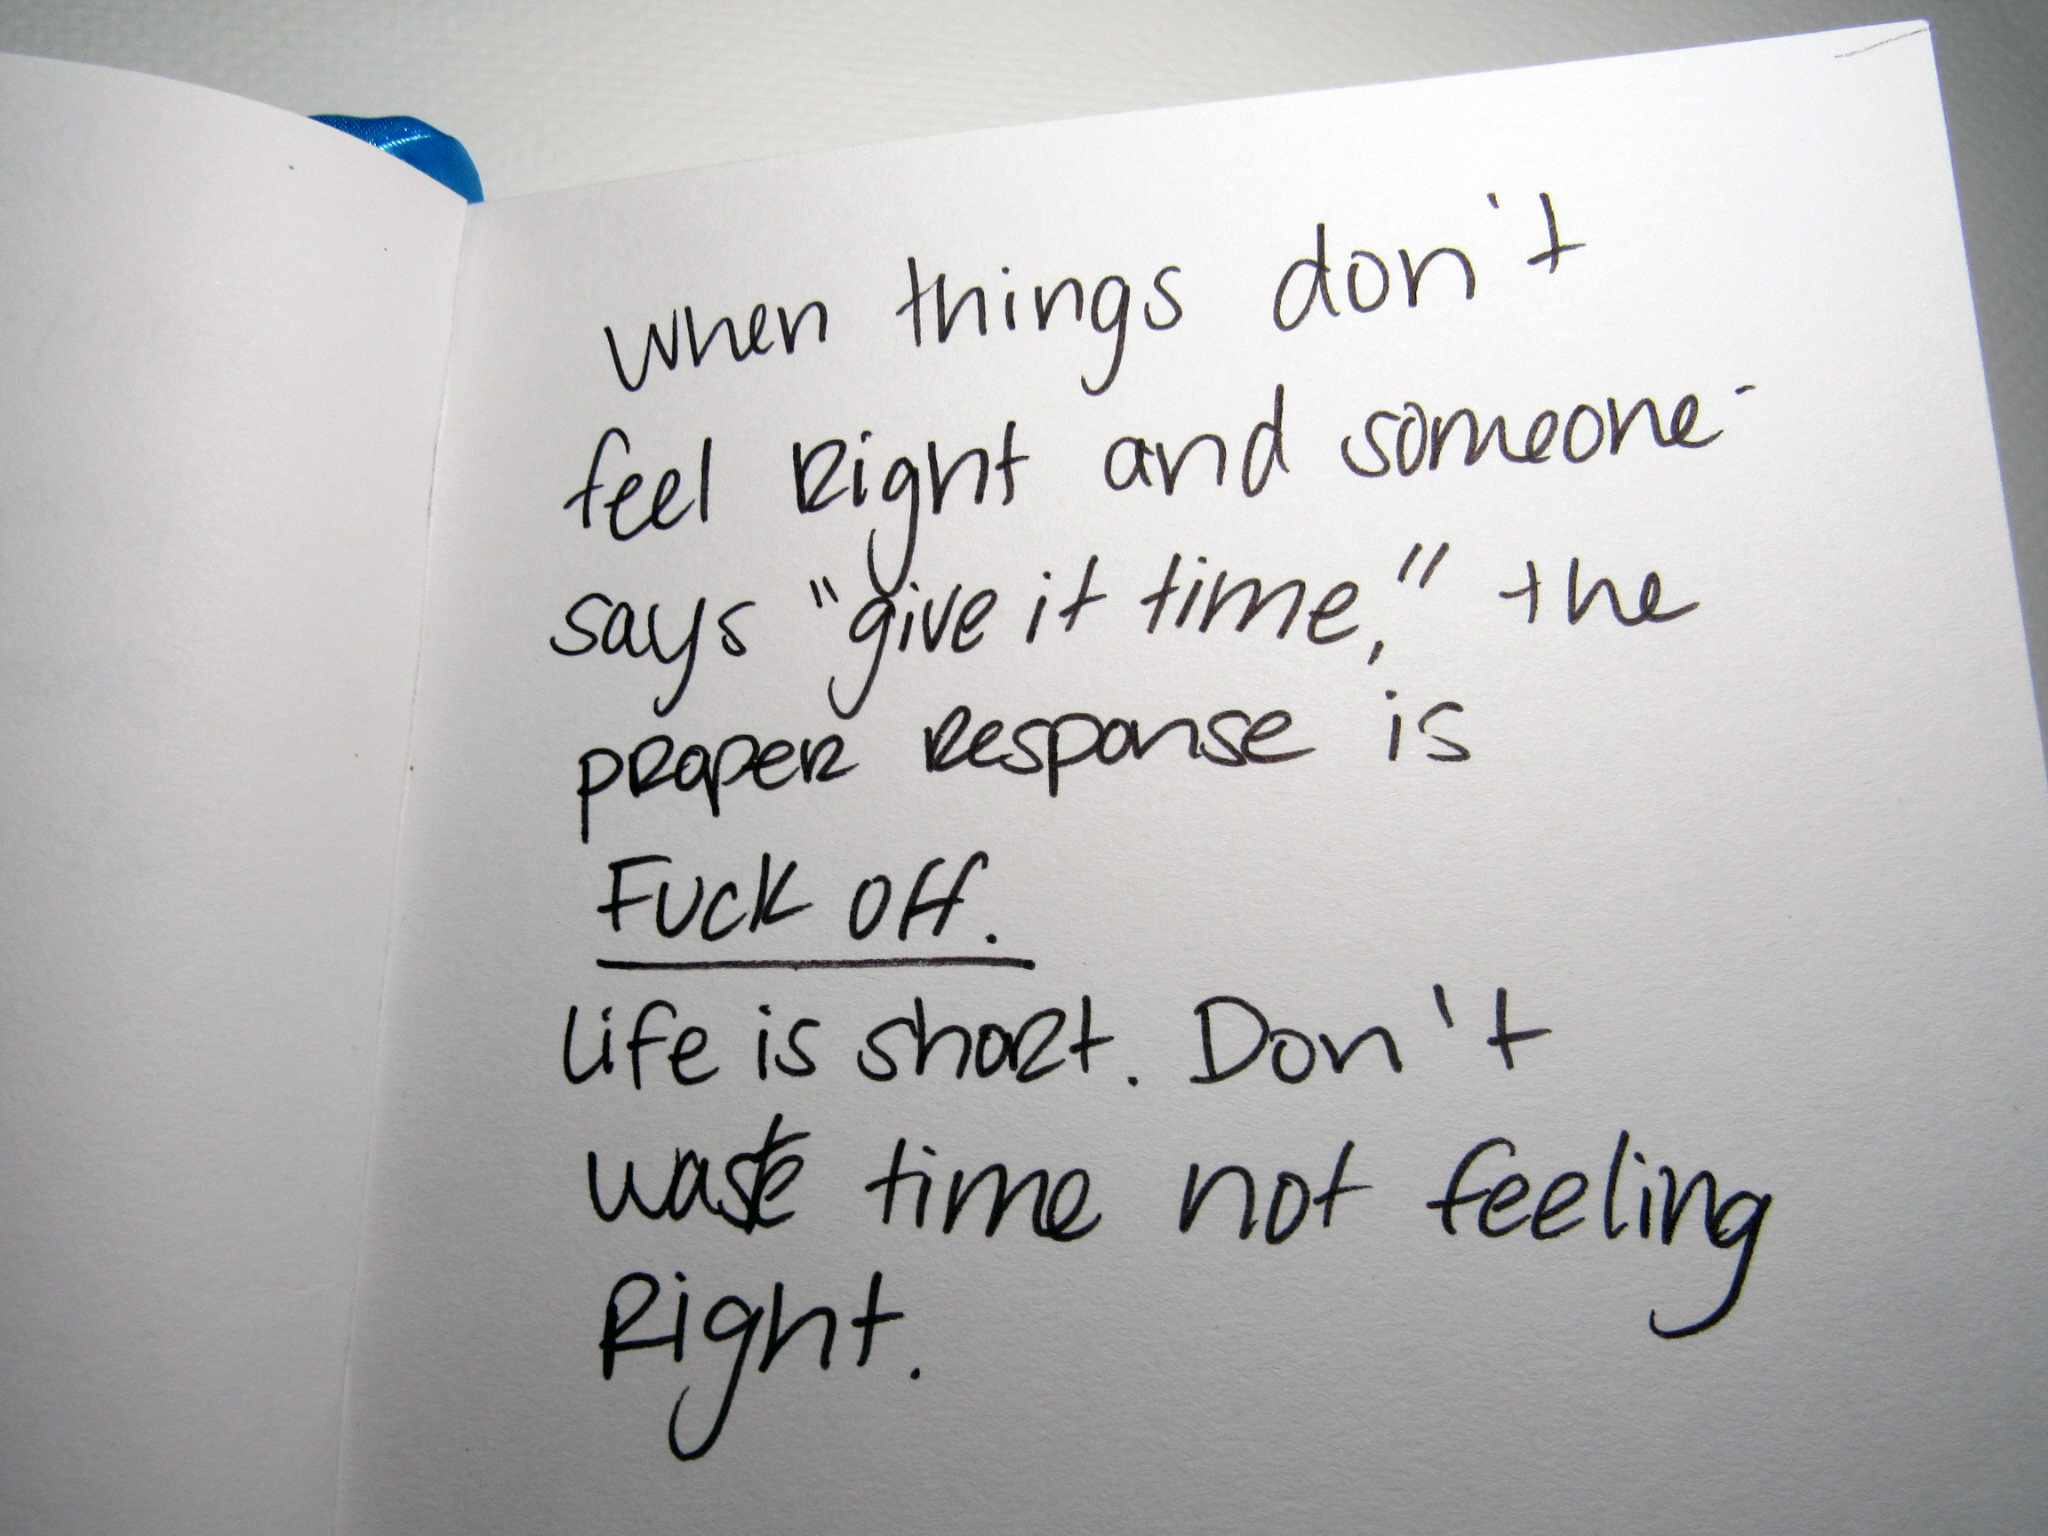 When things don't
feel Right and someone
says "give it time," the
proper response is
Fuck off.
Life is short. Don't
waste time not feeling
Right.